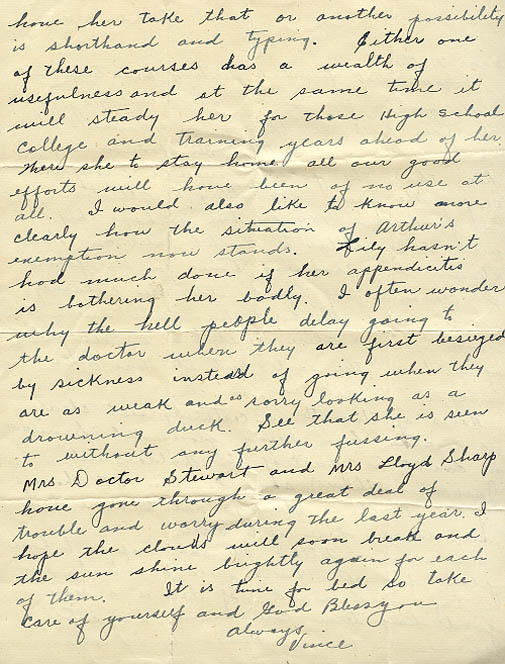 have her take that or another possibility
is shorthand and typing. Either one
of these courses has a wealth of
usefulness and at the same time it
will steady her for those High School
College and training years ahead of her.
Were she to stay home all our good
efforts will have been of no use at
all. I would also like to know more
clearly how the situation of Arthur's
exemption now stands. Lily hasn't
had much done if her appendicitis
is bothering her badly. I often wonder
why the hell people delay going to
the doctor when they are first besieged
by sickness instead of going when they
are as weak and as sorry looking as a
drowning duck. See that she is seen
to without any further fussing.
Mrs Doctor Stewart and Mrs Lloyd Sharp
have gone through a great deal of
trouble and worry during the last year. I
hope the clouds will soon break and
the sun shine brightly again for each
of them. It is time for bed so take
care of yourself and God Bless you
always
Vince